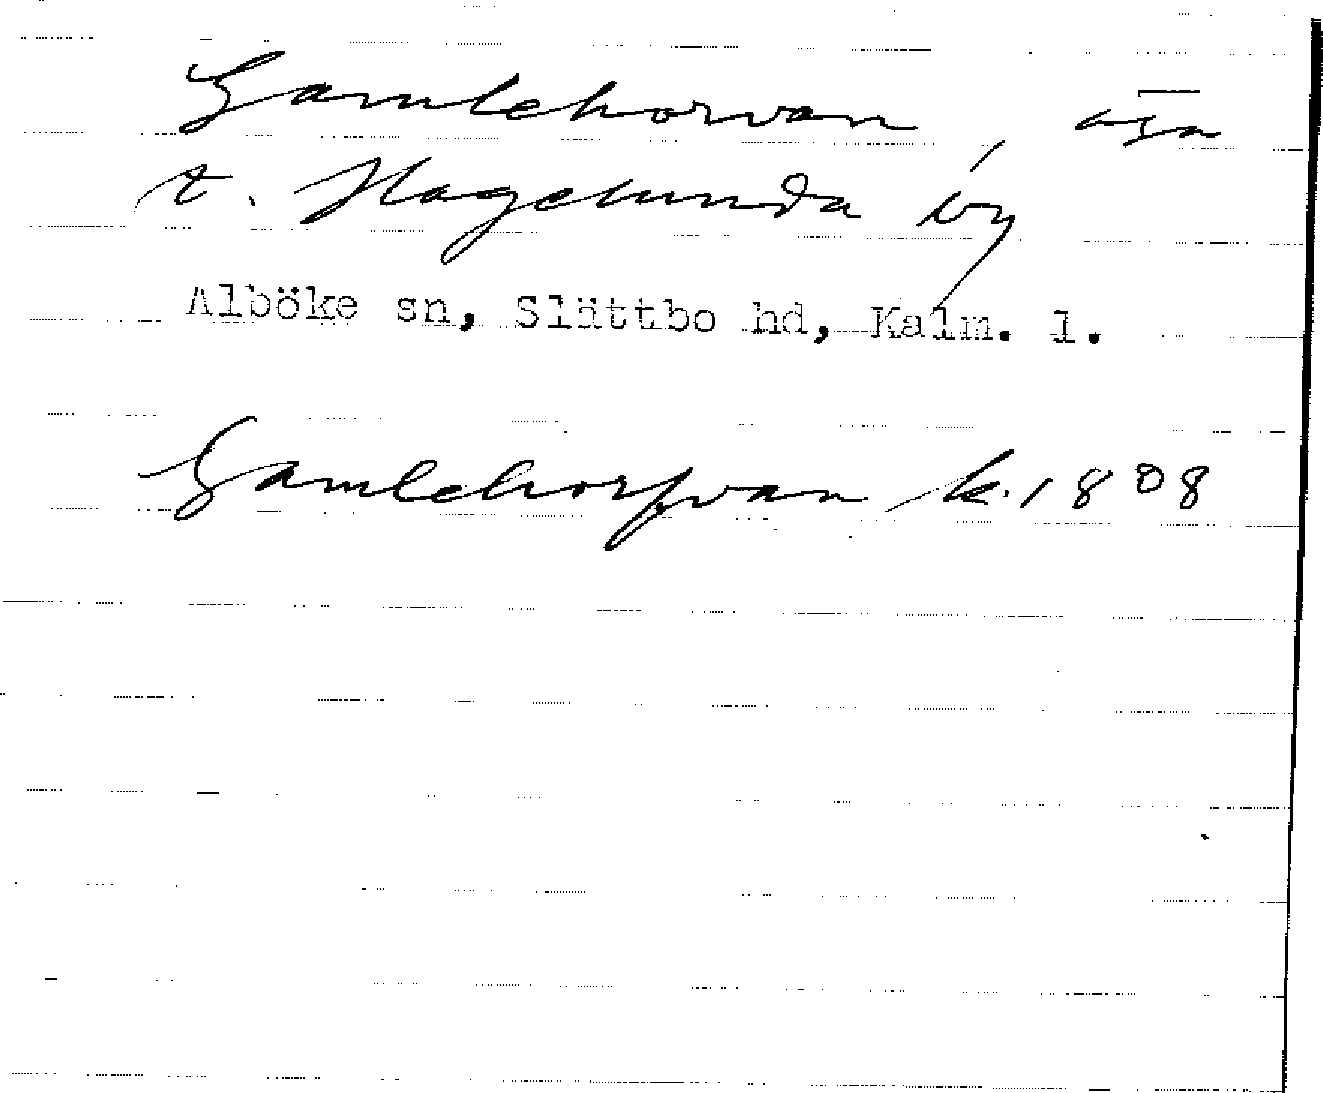 Gamlehorvan, äga
t. Hagelunda by
Alböke sn, Slättbo hd, Kalm. l.
Gamlehorfvan k. 1808